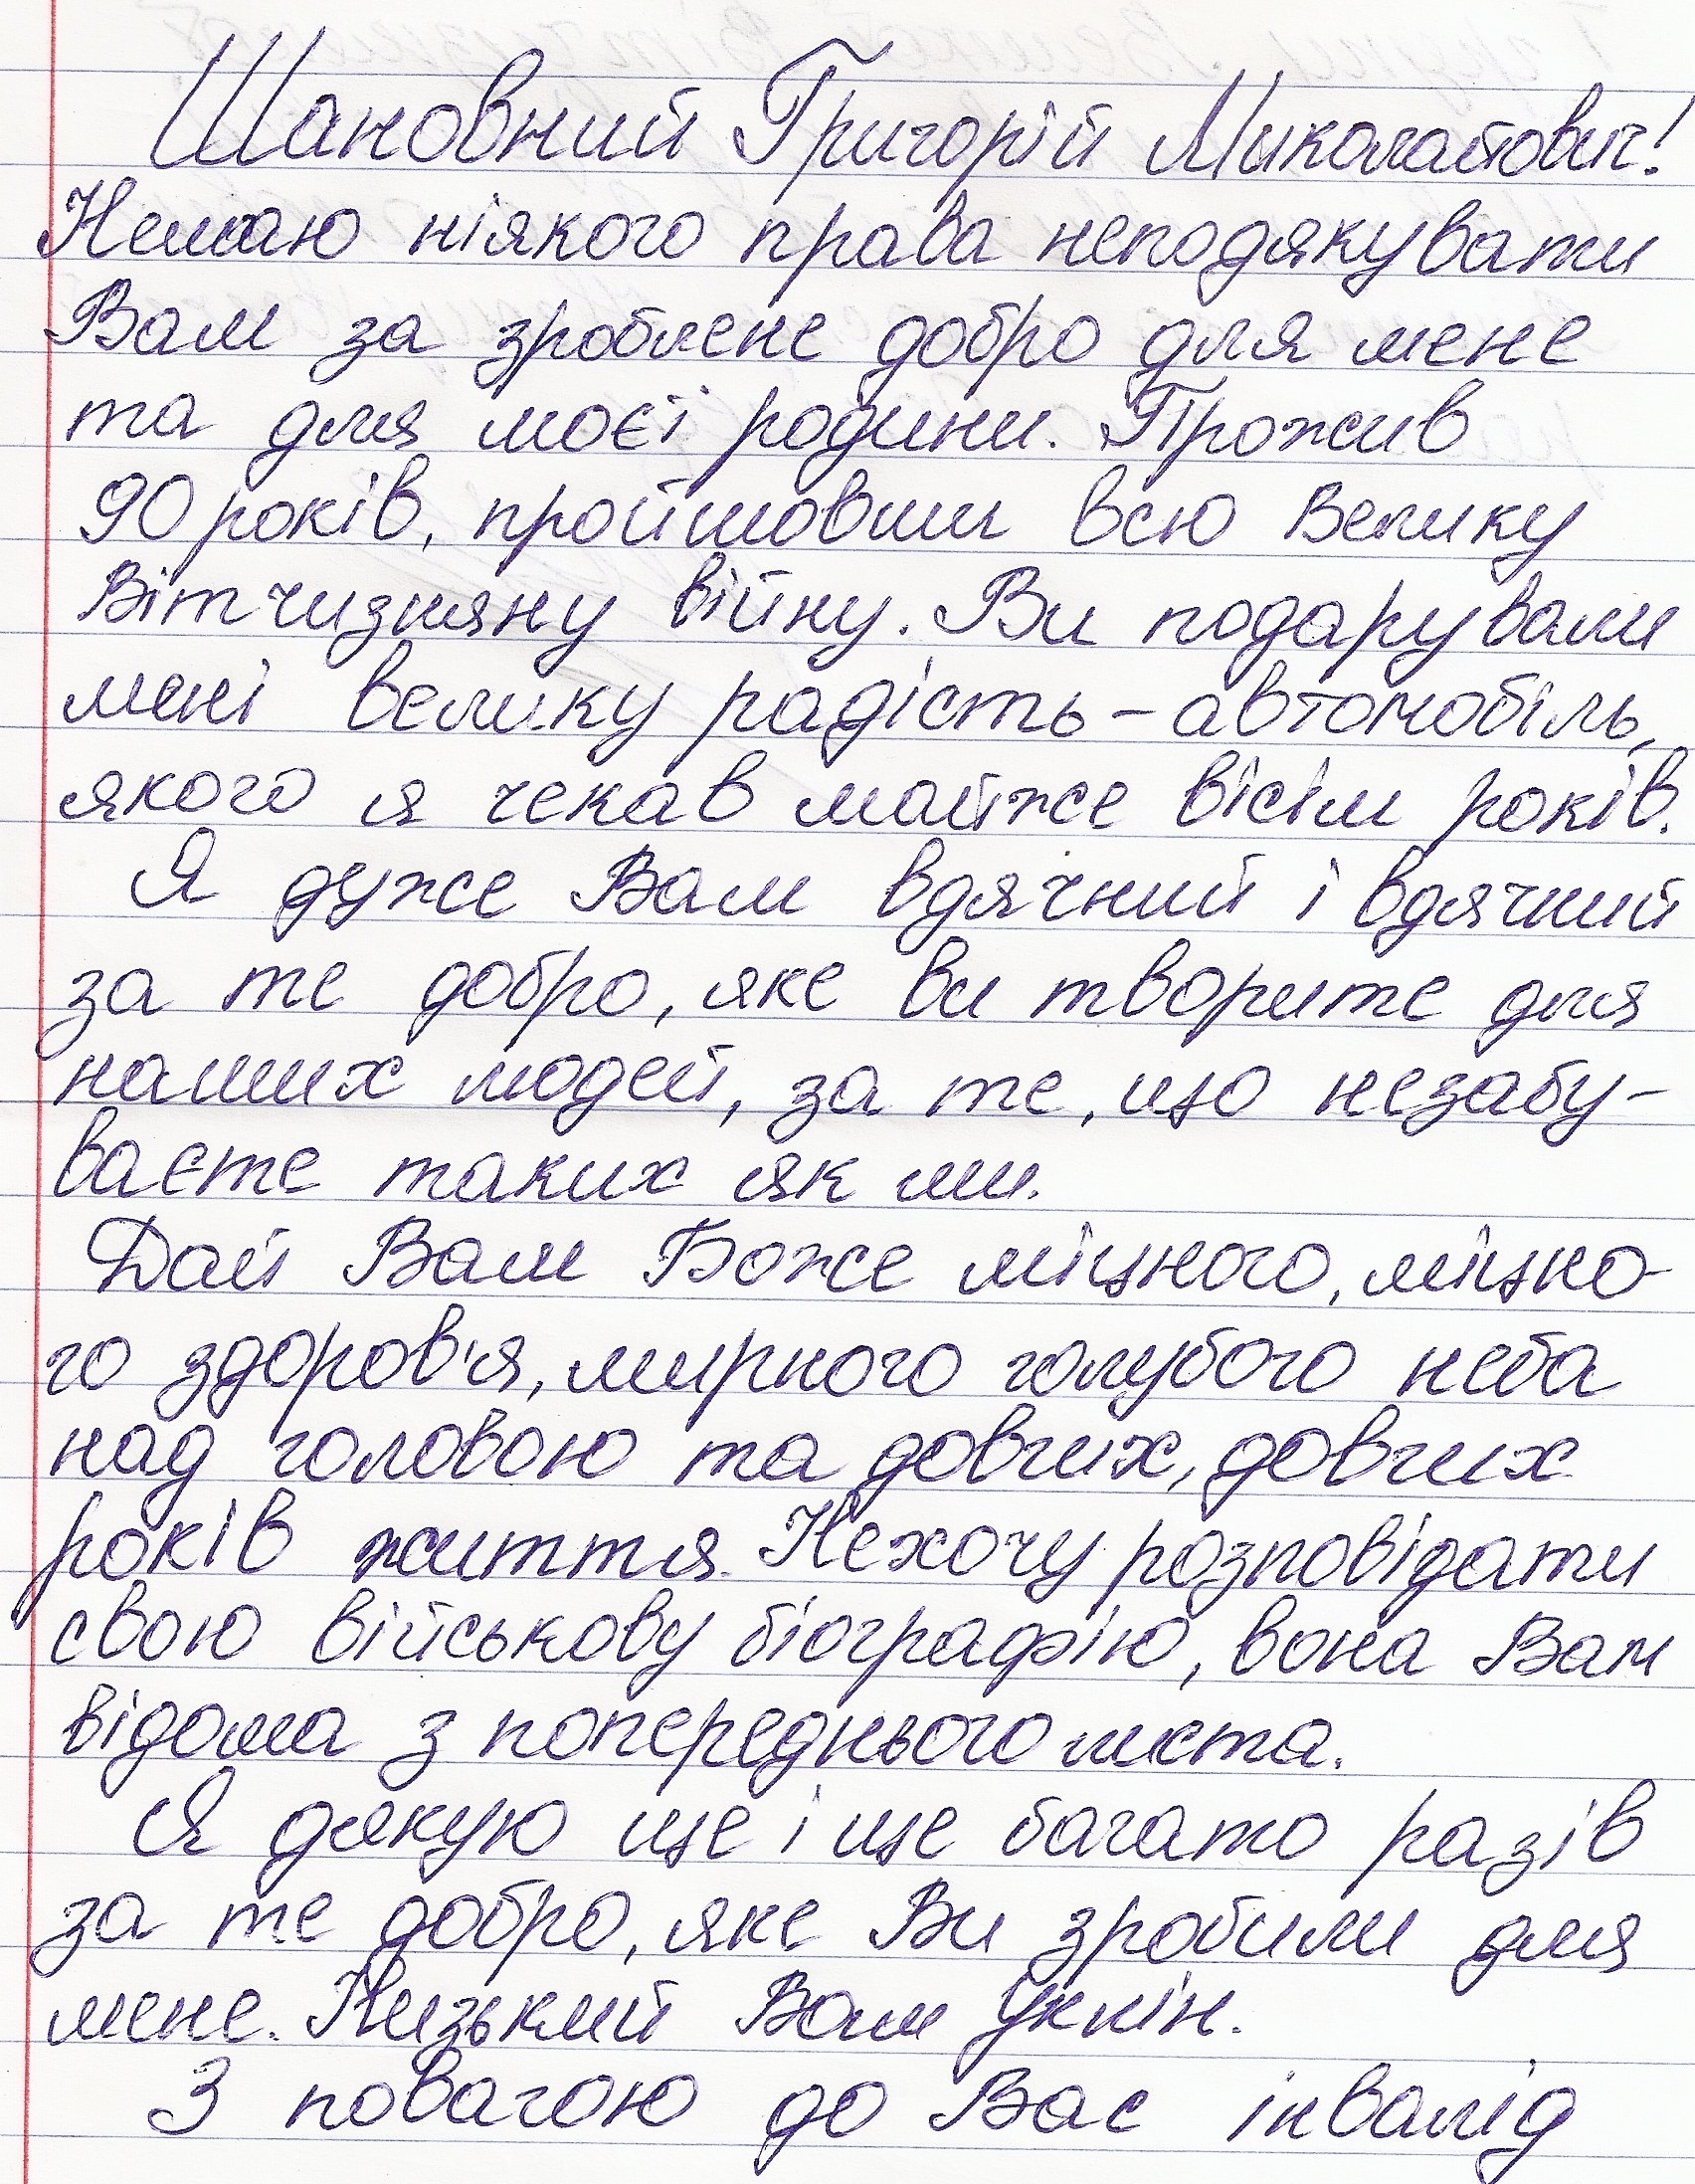 Шановний Григорій Миколайович!
Немаю ніякого права неподякувати
Вам за зроблене добро для мене
та для моєї родини. Прожив
90 років, пройшовши всю Велику
Вітчизняну війну. Ви подарували
мені велику радість – автомобіль,
якого я чекав майже вісім років.
Я дуже Вам вдячний і вдячний
за те добро, яке ви творите для
наших людей, за те, що незабу-
ваєте таких як ми.
Дай Вам Боже міцного, міцно-
го здоров'я, мирного голубого неба
над головою та довгих, довгих
років життя. Нехочу розповідати
свою військову біографію, вона Вам
відома з попереднього листа.
Я дякую ще і ще багато разів
за те добро, яке Ви зробили для
мене. Низький Вам уклін.
З повагою до Вас інвалід